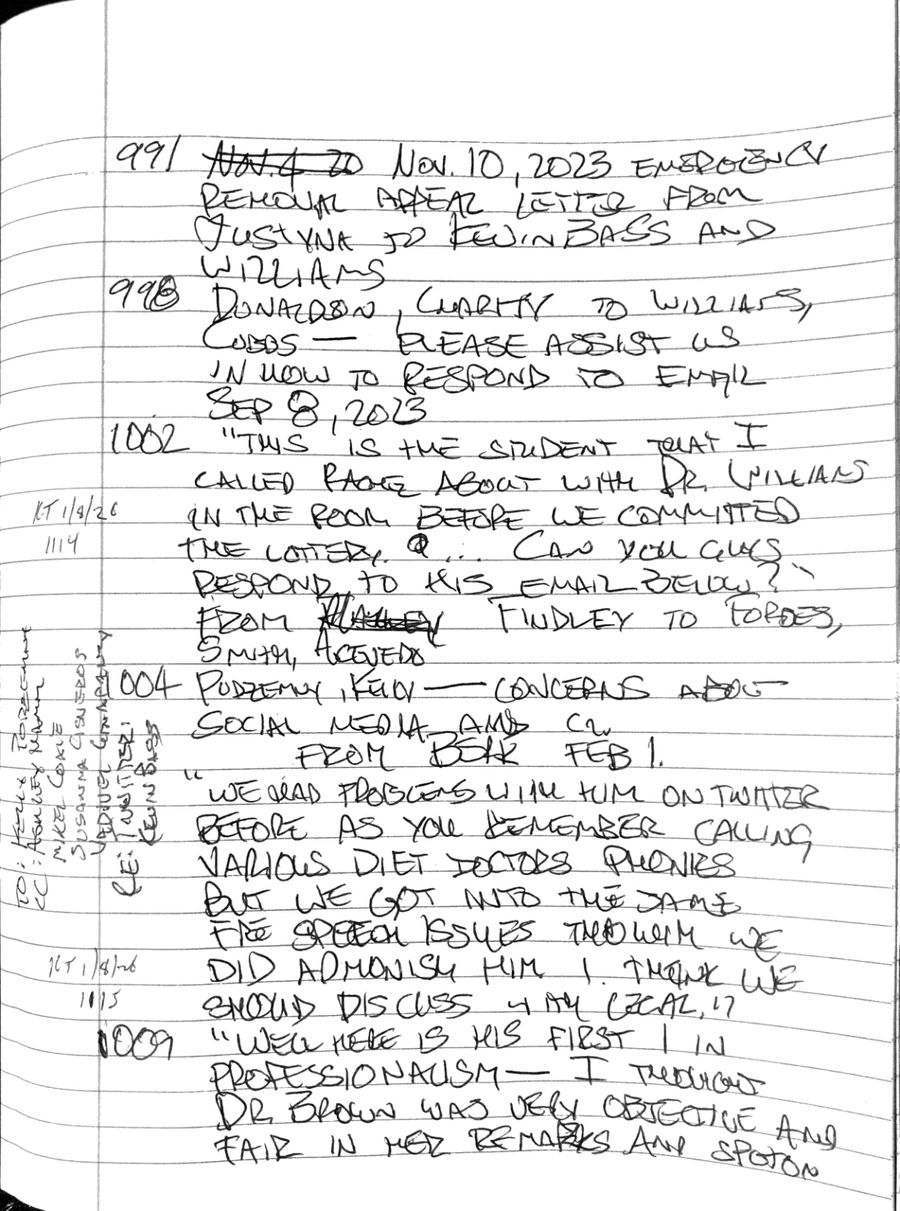 991 Nov. 4 20 Nov. 10, 2023 EMERGENCY
REMOVAL APPEAL LETTER FROM
JUSTYNA TO KEVIN BASS AND
WILLIAMS
998 DONALDSON, CHARITY TO WILLIAMS,
COBOS — PLEASE ASSIST US
IN HOW TO RESPOND TO EMAIL
SEP 8, 2023
1002 "THIS IS THE STUDENT THAT I
CALLED ABOUT WITH DR. WILLIAMS
KT 1/8/26 IN THE ROOM BEFORE WE COMMITTED
1114 THE LOTTERY. ... CAN YOU GUYS
RESPOND TO THIS EMAIL BELOW?"
FROM FINDLEY TO FORBES,
SMITH, ACEVEDO
1004 PUDZEMNY, KELLY — CONCERNS ABOUT
SOCIAL MEDIA AND
FROM BERK FEB 1.
"WE HAD PROBLEMS WITH HIM ON TWITTER
BEFORE AS YOU REMEMBER CALLING
VARIOUS DIET DOCTORS PHONIES
BUT WE GOT INTO THE SAME
FREE SPEECH ISSUES THOUGH WE
KT 1/8/26 DID ADMONISH HIM I THINK WE
1115 SHOULD DISCUSS WITH LEGAL."
1009 "WELL HERE IS HIS FIRST 1 IN
PROFESSIONALISM — I THOUGHT
DR BROWN WAS VERY OBJECTIVE AND
FAIR IN HER REMARKS AND SPOTON
TO: KELLY
CC: ASHLEY
MIKEL COKE
SUSANNA CISNEROS
RE: TWITTER:
KEVIN BASS